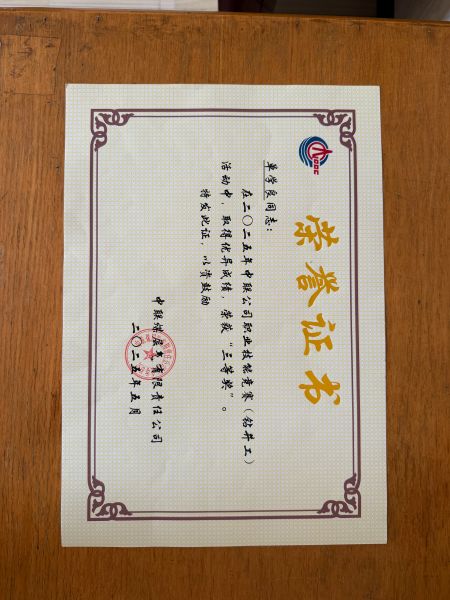 荣誉证书
单学良同志：
在二〇二五年中联公司职业技能竞赛（钻井工）
活动中，取得优异成绩，荣获“三等奖”。
特发此证，以资鼓励
中联煤层气有限责任公司
二〇二五年五月